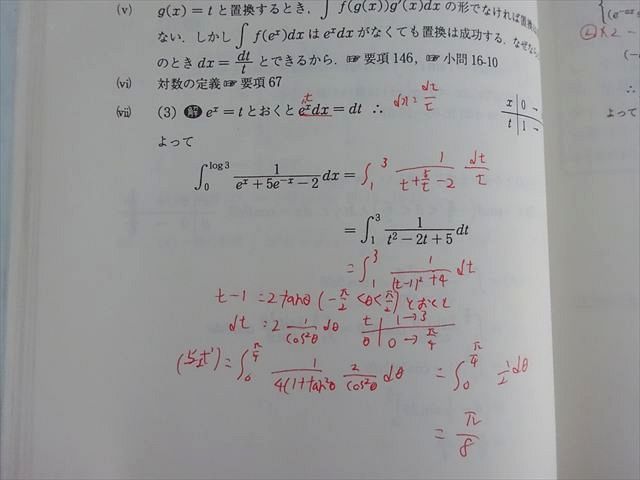 (v) g(x) = t と置換するとき，∫ f(g(x))g′(x)dx の形でなければ置換は
ない．しかし ∫ f(eˣ)dx は eˣdx がなくても置換は成功する．なぜなら
のとき dx = dt/t とできるから．☞ 要項 146，☞ 小問 16-10
(vi) 対数の定義 ☞ 要項 67
(vii) (3) 解 eˣ = t とおくと eˣdx = dt ∴ dx = dt/t
t
x 0
t 1
よって
∫₀^{log 3} 1/(eˣ + 5e⁻ˣ − 2) dx = ∫₁³ 1/(t + 5/t − 2) dt/t
= ∫₁³ 1/(t² − 2t + 5) dt
= ∫₁³ 1/((t−1)² + 4) dt
t − 1 = 2tanθ (−π/2 < θ < π/2) とおくと
dt = 2 1/cos²θ dθ
t 1 → 3
θ 0 → π/4
(与式) = ∫₀^{π/4} 1/(4(1+tan²θ)) 2/cos²θ dθ = ∫₀^{π/4} 1/2 dθ
= π/8
② × 2 −
∴
よって